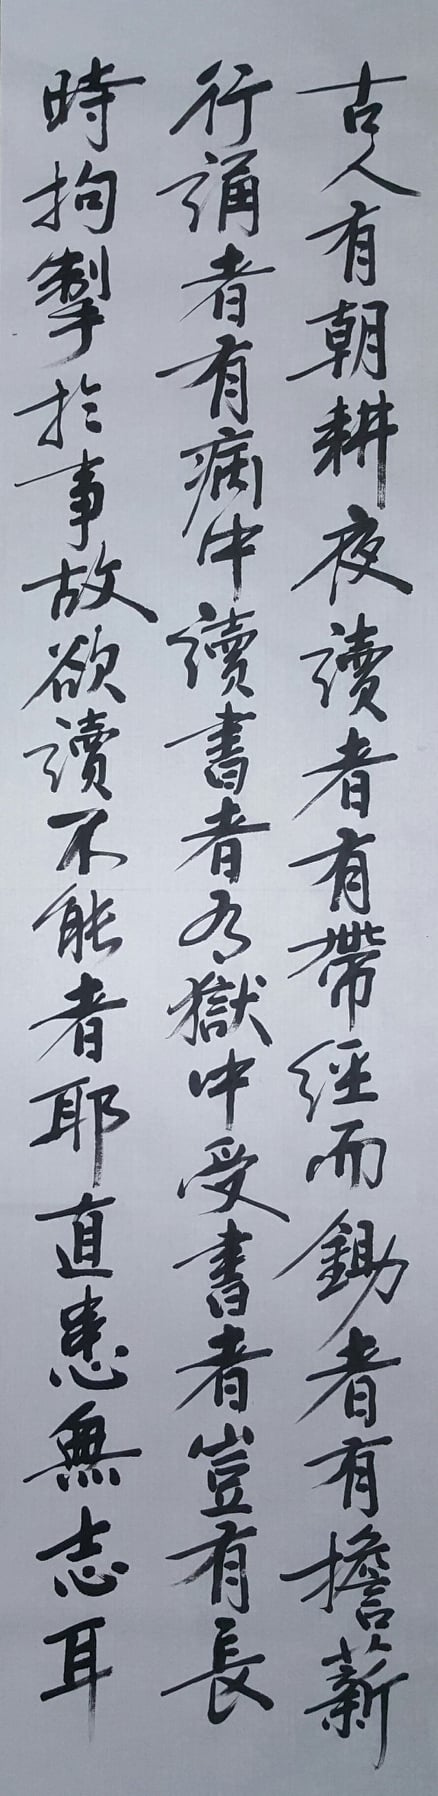 古人有朝耕夜讀者有帶經而鋤者有擔薪
行誦者有病中讀書者有獄中受書者豈有長
時拘掣於事故欲讀不能者耶直患無志耳